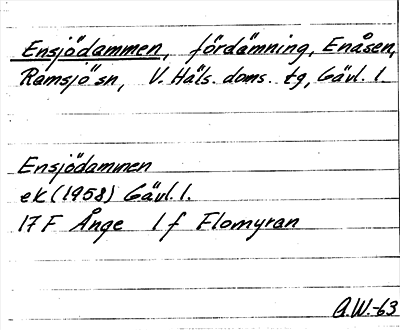 Ensjödammen, fördämning, Enåsen,
Ramsjö sn, V. Häls. doms. tg, Gävl. l.
Ensjödammen
ek (1958) Gävl. l.
17 F Ånge 1 f Flomyran
G.W.-63